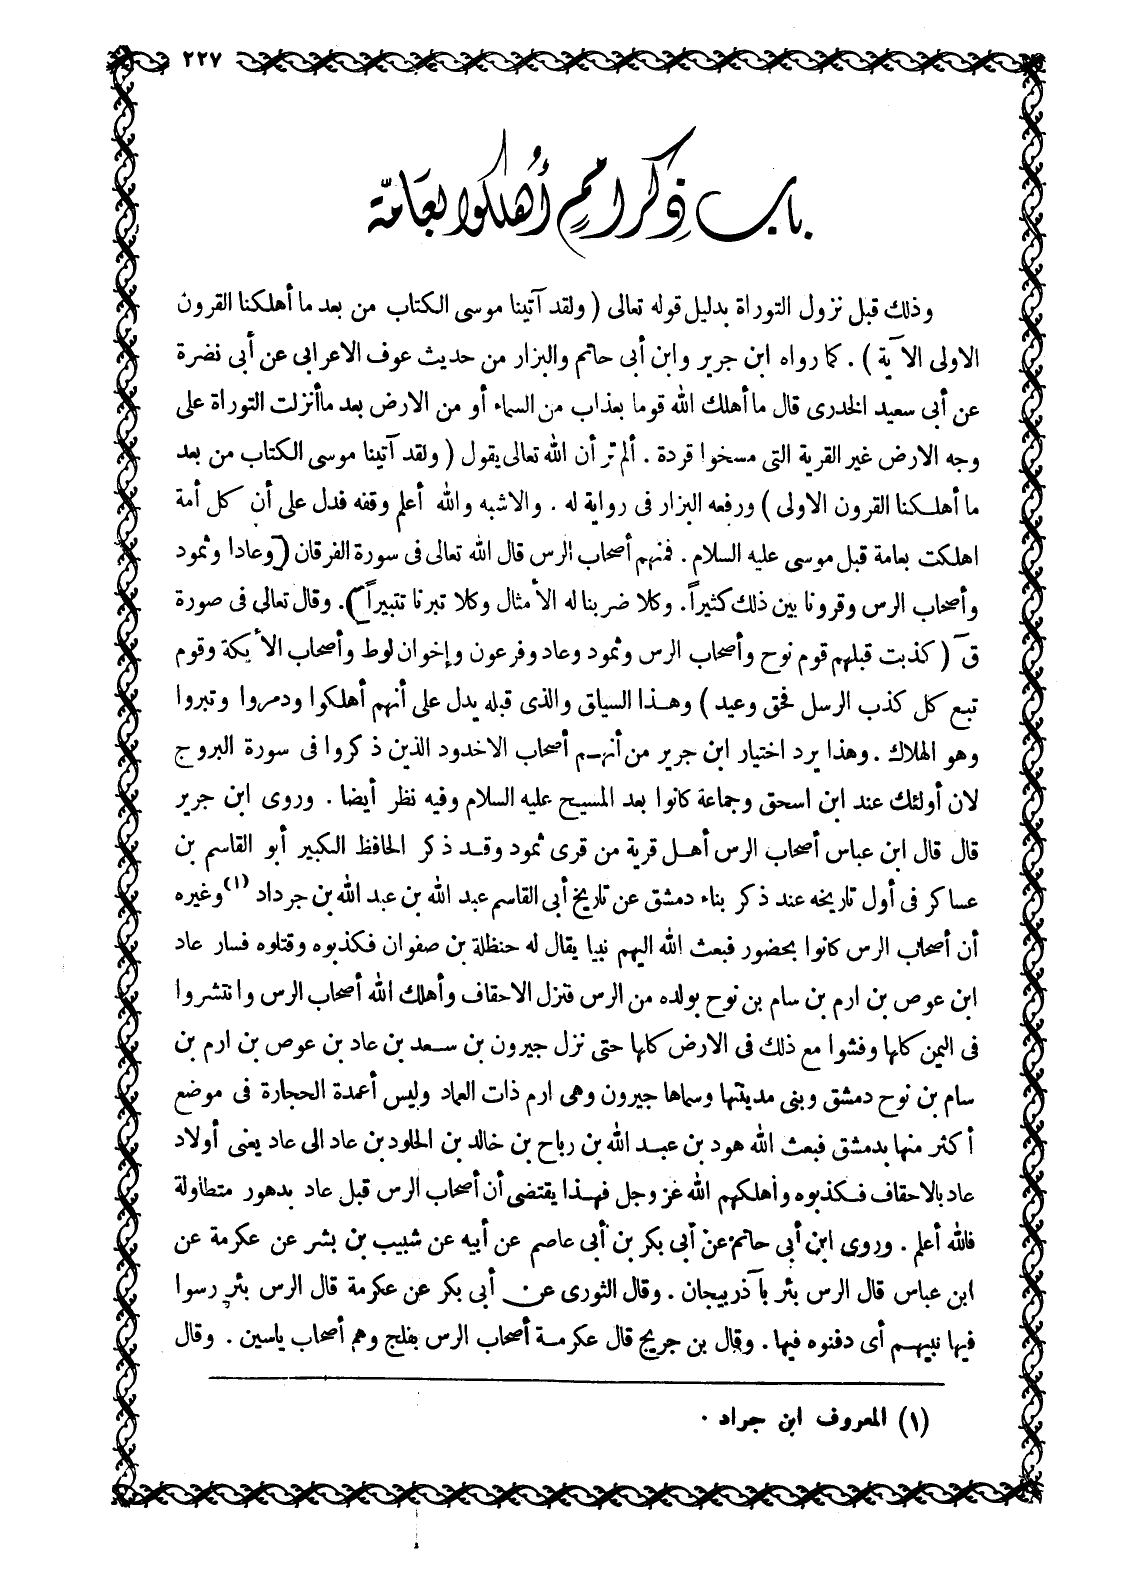 ٢٢٧
باب ذكر أمم أهلكوا بعامّة
وذلك قبل نزول التوراة بدليل قوله تعالى ( ولقد آتينا موسى الكتاب من بعد ما أهلكنا القرون
الاولى الآية ) . كما رواه ابن جرير وابن أبى حاتم والبزار من حديث عوف الاعرابى عن أبى نضرة
عن أبى سعيد الخدرى قال ما أهلك الله قوما بعذاب من السماء أو من الارض بعد ماأنزلت التوراة على
وجه الارض غير القرية التى مسخوا قردة . ألم تر أن الله تعالى يقول ( ولقد آتينا موسى الكتاب من بعد
ما أهلكنا القرون الاولى ) ورفعه البزار فى رواية له . والاشبه والله أعلم وقفه فدل على أن كل أمة
اهلكت بعامة قبل موسى عليه السلام . فمنهم أصحاب الرس قال الله تعالى فى سورة الفرقان ( وعادا وثمود
وأصحاب الرس وقرونا بين ذلك كثيراً. وكلا ضربنا له الأمثال وكلا تبرنا تتبيراً ). وقال تعالى فى صورة
قٓ ( كذبت قبلهم قوم نوح وأصحاب الرس وثمود وعاد وفرعون وإخوان لوط وأصحاب الأيكة وقوم
تبع كل كذب الرسل فحق وعيد ) وهذا السياق والذى قبله يدل على أنهم أهلكوا ودمروا وتبروا
وهو الهلاك . وهذا يرد اختيار ابن جرير من أنهم أصحاب الاخدود الذين ذكروا فى سورة البروج
لان أولئك عند ابن اسحق وجماعة كانوا بعد المسيح عليه السلام وفيه نظر أيضا . وروى ابن جرير
قال قال ابن عباس أصحاب الرس أهل قرية من قرى ثمود وقد ذكر الحافظ الكبير أبو القاسم بن
عساكر فى أول تاريخه عند ذكر بناء دمشق عن تاريخ أبى القاسم عبد الله بن عبد الله بن جرداد (١) وغيره
أن أصحاب الرس كانوا بحضور فبعث الله اليهم نبيا يقال له حنظلة بن صفوان فكذبوه وقتلوه فسار عاد
ابن عوص بن ارم بن سام بن نوح بولده من الرس فنزل الاحقاف وأهلك الله أصحاب الرس وانتشروا
فى اليمن كلها وفشوا مع ذلك فى الارض كلها حتى نزل جيرون بن سعد بن عاد بن عوص بن ارم بن
سام بن نوح دمشق وبنى مدينتها وسماها جيرون وهى ارم ذات العماد وليس أعمدة الحجارة فى موضع
أكثر منها بدمشق فبعث الله هود بن عبد الله بن رباح بن خالد بن الخلود بن عاد الى عاد يعنى أولاد
عاد بالاحقاف فكذبوه وأهلكهم الله عز وجل فهذا يقتضى أن أصحاب الرس قبل عاد بدهور متطاولة
فالله أعلم . وروى ابن أبى حاتم عن أبى بكر بن أبى عاصم عن أبيه عن شبيب بن بشر عن عكرمة عن
ابن عباس قال الرس بئر بآذربيجان . وقال الثورى عن أبى بكر عن عكرمة قال الرس بئر رسوا
فيها نبيهم أى دفنوه فيها . وقال بن جريج قال عكرمة أصحاب الرس بفلج وهم أصحاب ياسين . وقال
(١) المعروف ابن جراد .